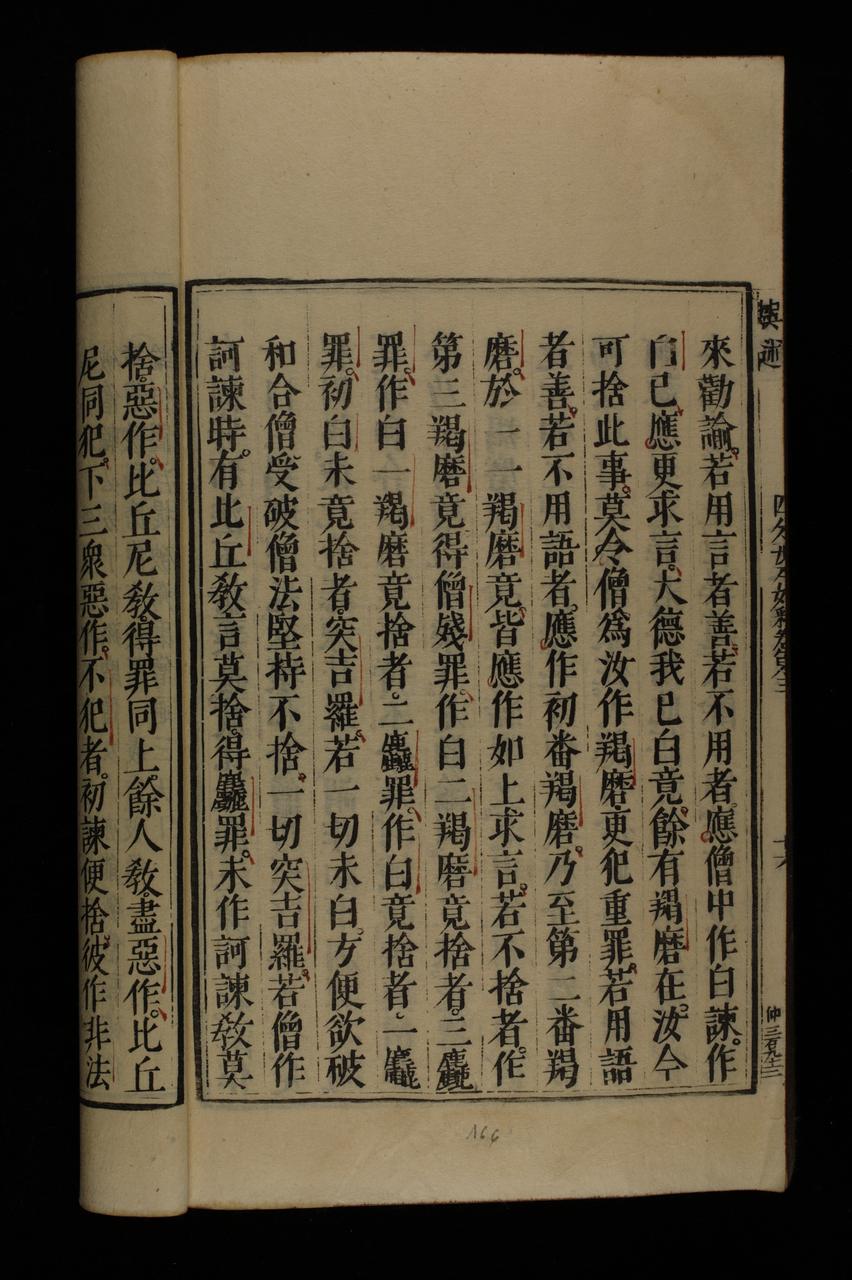 來勸諭。若用言者善。若不用者。應僧中作白諫。作
白已。應更求言。大德我已白竟。餘有羯磨在。汝今
可捨此事。莫令僧爲汝作羯磨。更犯重罪。若用語
者善。若不用語者。應作初番羯磨。乃至第二番羯
磨。於一一羯磨竟。皆應作如上求言。若不捨者。作
第三羯磨竟。得僧殘罪。作白二羯磨竟捨者。三麤
罪。作白一羯磨竟捨者。二麤罪。作白竟捨者。一麤
罪。初白未竟捨者。突吉羅。若一切未白。方便欲破
和合僧。受破僧法。堅持不捨。一切突吉羅。若僧作
訶諫時。有比丘敎言莫捨。得麤罪。未作訶諫敎莫
捨。惡作。比丘尼敎。得罪同上。餘人敎。盡惡作。比丘
尼同犯。下三衆惡作。不犯者。初諫便捨。彼作非法